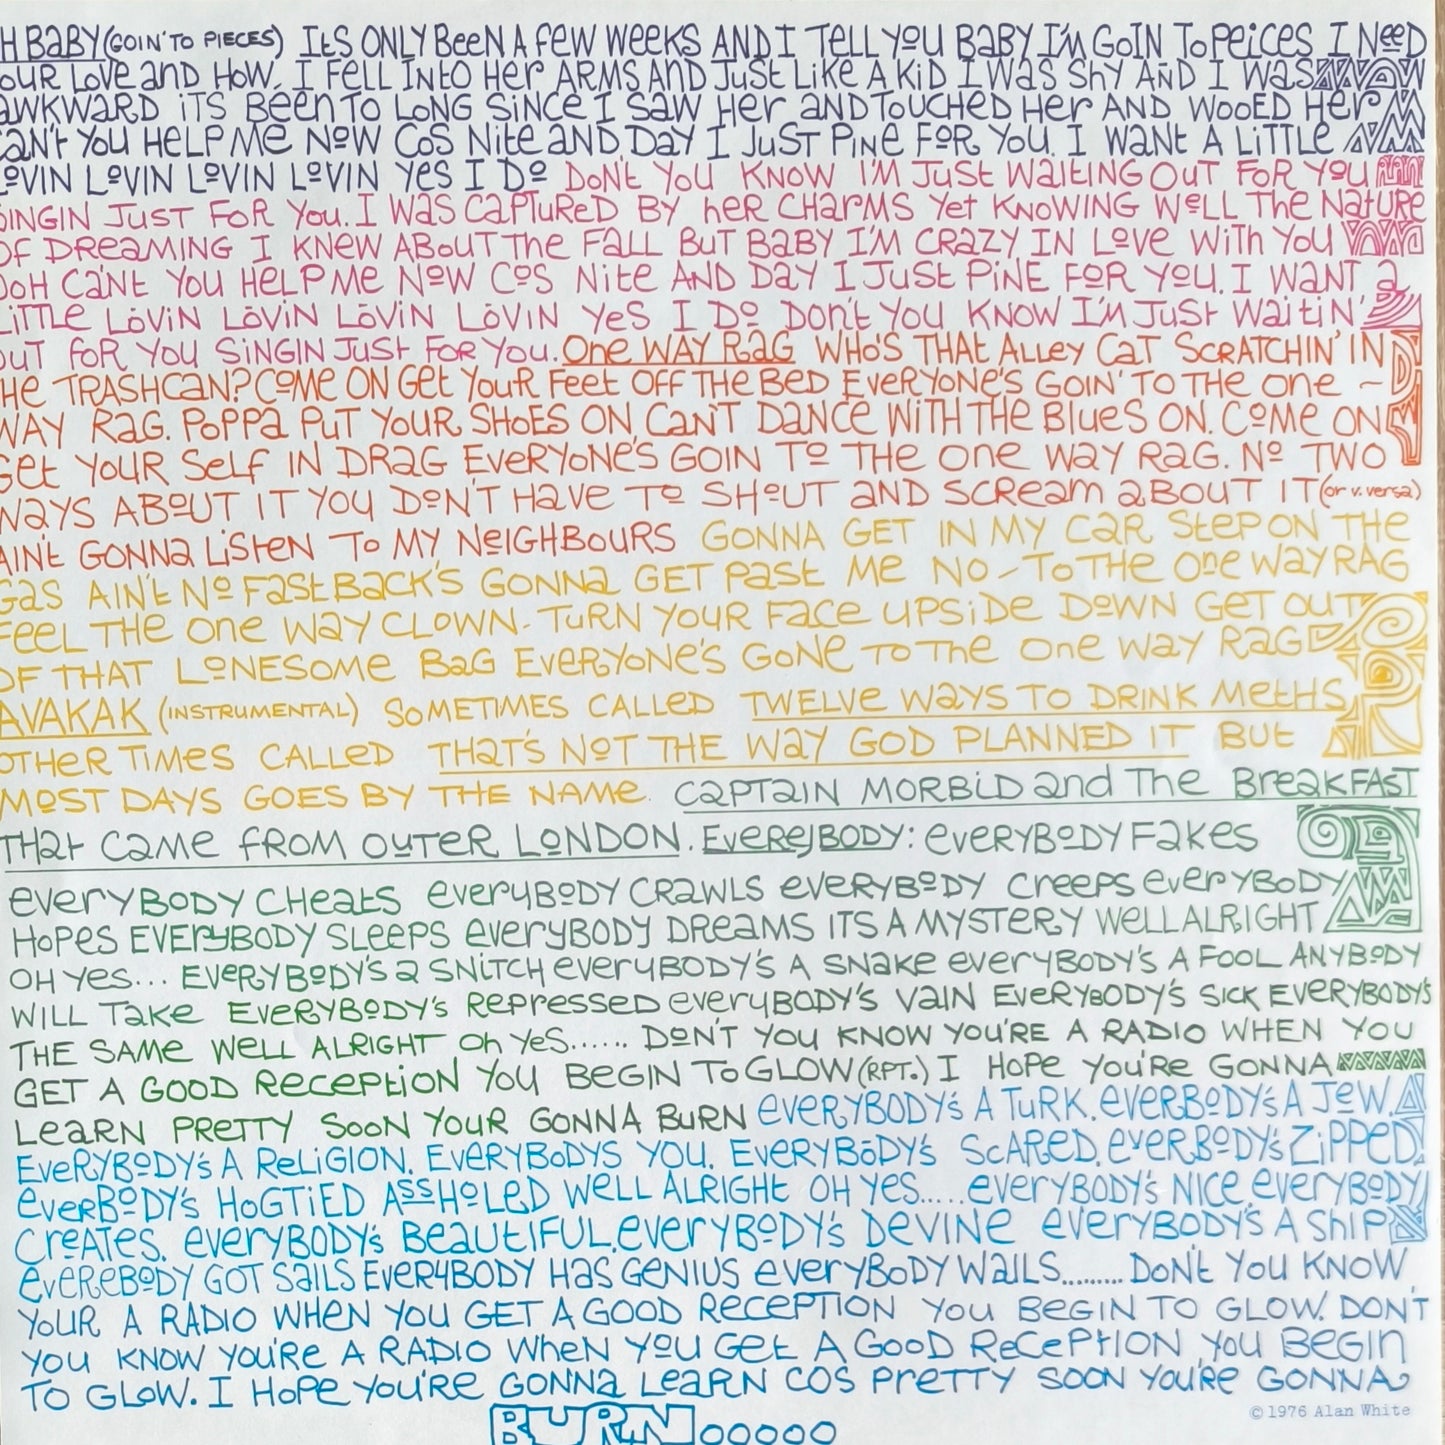 H BABY (GOIN' TO PIECES) ITS ONLY BEEN A FEW WEEKS AND I TELL YOU BABY I'M GOIN TO PEICES I NEED
OUR LOVE AND HOW. I FELL INTO HER ARMS AND JUST LIKE A KID I WAS SHY AND I WAS
AWKWARD ITS BEEN TO LONG SINCE I SAW HER AND TOUCHED HER AND WOOED HER
CAN'T YOU HELP ME NOW COS NITE AND DAY I JUST PINE FOR YOU. I WANT A LITTLE
LOVIN LOVIN LOVIN LOVIN YES I DO DON'T YOU KNOW I'M JUST WAITING OUT FOR YOU
SINGIN JUST FOR YOU. I WAS CAPTURED BY HER CHARMS YET KNOWING WELL THE NATURE
OF DREAMING I KNEW ABOUT THE FALL BUT BABY I'M CRAZY IN LOVE WITH YOU
OOH CAN'T YOU HELP ME NOW COS NITE AND DAY I JUST PINE FOR YOU. I WANT A
LITTLE LOVIN LOVIN LOVIN LOVIN YES I DO DON'T YOU KNOW I'M JUST WAITIN'
OUT FOR YOU SINGIN JUST FOR YOU. ONE WAY RAG WHO'S THAT ALLEY CAT SCRATCHIN' IN
HE TRASHCAN? COME ON GET YOUR FEET OFF THE BED EVERYONE'S GOIN' TO THE ONE ~
WAY RAG. POPPA PUT YOUR SHOES ON CAN'T DANCE WITH THE BLUES ON. COME ON
GET YOUR SELF IN DRAG EVERYONE'S GOIN TO THE ONE WAY RAG. NO TWO
WAYS ABOUT IT YOU DON'T HAVE TO SHOUT AND SCREAM ABOUT IT (or v. versa)
AIN'T GONNA LISTEN TO MY NEIGHBOURS GONNA GET IN MY CAR STEP ON THE
GAS AIN'T NO FASTBACK'S GONNA GET PAST ME NO - TO THE ONE WAY RAG
FEEL THE ONE WAY CLOWN - TURN YOUR FACE UPSIDE DOWN GET OUT
OF THAT LONESOME BAG EVERYONE'S GONE TO THE ONE WAY RAG
AVAKAK (INSTRUMENTAL) SOMETIMES CALLED TWELVE WAYS TO DRINK METHS
OTHER TIMES CALLED THAT'S NOT THE WAY GOD PLANNED IT BUT
MOST DAYS GOES BY THE NAME. CAPTAIN MORBID AND THE BREAKFAST
THAT CAME FROM OUTER LONDON. EVEREYBODY: EVERYBODY FAKES
EVERYBODY CHEATS EVERYBODY CRAWLS EVERYBODY CREEPS EVERYBODY
HOPES EVERYBODY SLEEPS EVERYBODY DREAMS ITS A MYSTERY WELL ALRIGHT
OH YES... EVERYBODY'S A SNITCH EVERYBODY'S A SNAKE EVERYBODY'S A FOOL ANYBODY
WILL TAKE EVERYBODY'S REPRESSED EVERYBODY'S VAIN EVERYBODY'S SICK EVERYBODY'S
THE SAME WELL ALRIGHT OH YES...... DON'T YOU KNOW YOU'RE A RADIO WHEN YOU
GET A GOOD RECEPTION YOU BEGIN TO GLOW (RPT.) I HOPE YOU'RE GONNA
LEARN PRETTY SOON YOUR GONNA BURN EVERYBODY'S A TURK. EVERBODY'S A JEW.
EVERYBODY'S A RELIGION. EVERYBODYS YOU. EVERYBODY'S SCARED. EVERBODY'S ZIPPED.
EVERBODY'S HOGTIED ASSHOLED WELL ALRIGHT OH YES.....EVERYBODY'S NICE. EVERYBODY
CREATES. EVERYBODY'S BEAUTIFUL. EVERYBODY'S DEVINE EVERYBODY'S A SHIP
EVEREBODY GOT SAILS EVERYBODY HAS GENIUS EVERYBODY WAILS.......... DON'T YOU KNOW
YOUR A RADIO WHEN YOU GET A GOOD RECEPTION YOU BEGIN TO GLOW. DON'T
YOU KNOW YOU'RE A RADIO WHEN YOU GET A GOOD RECEPTION YOU BEGIN
TO GLOW. I HOPE YOU'RE GONNA LEARN COS PRETTY SOON YOU'RE GONNA
BURN OOOOO
© 1976 Alan White